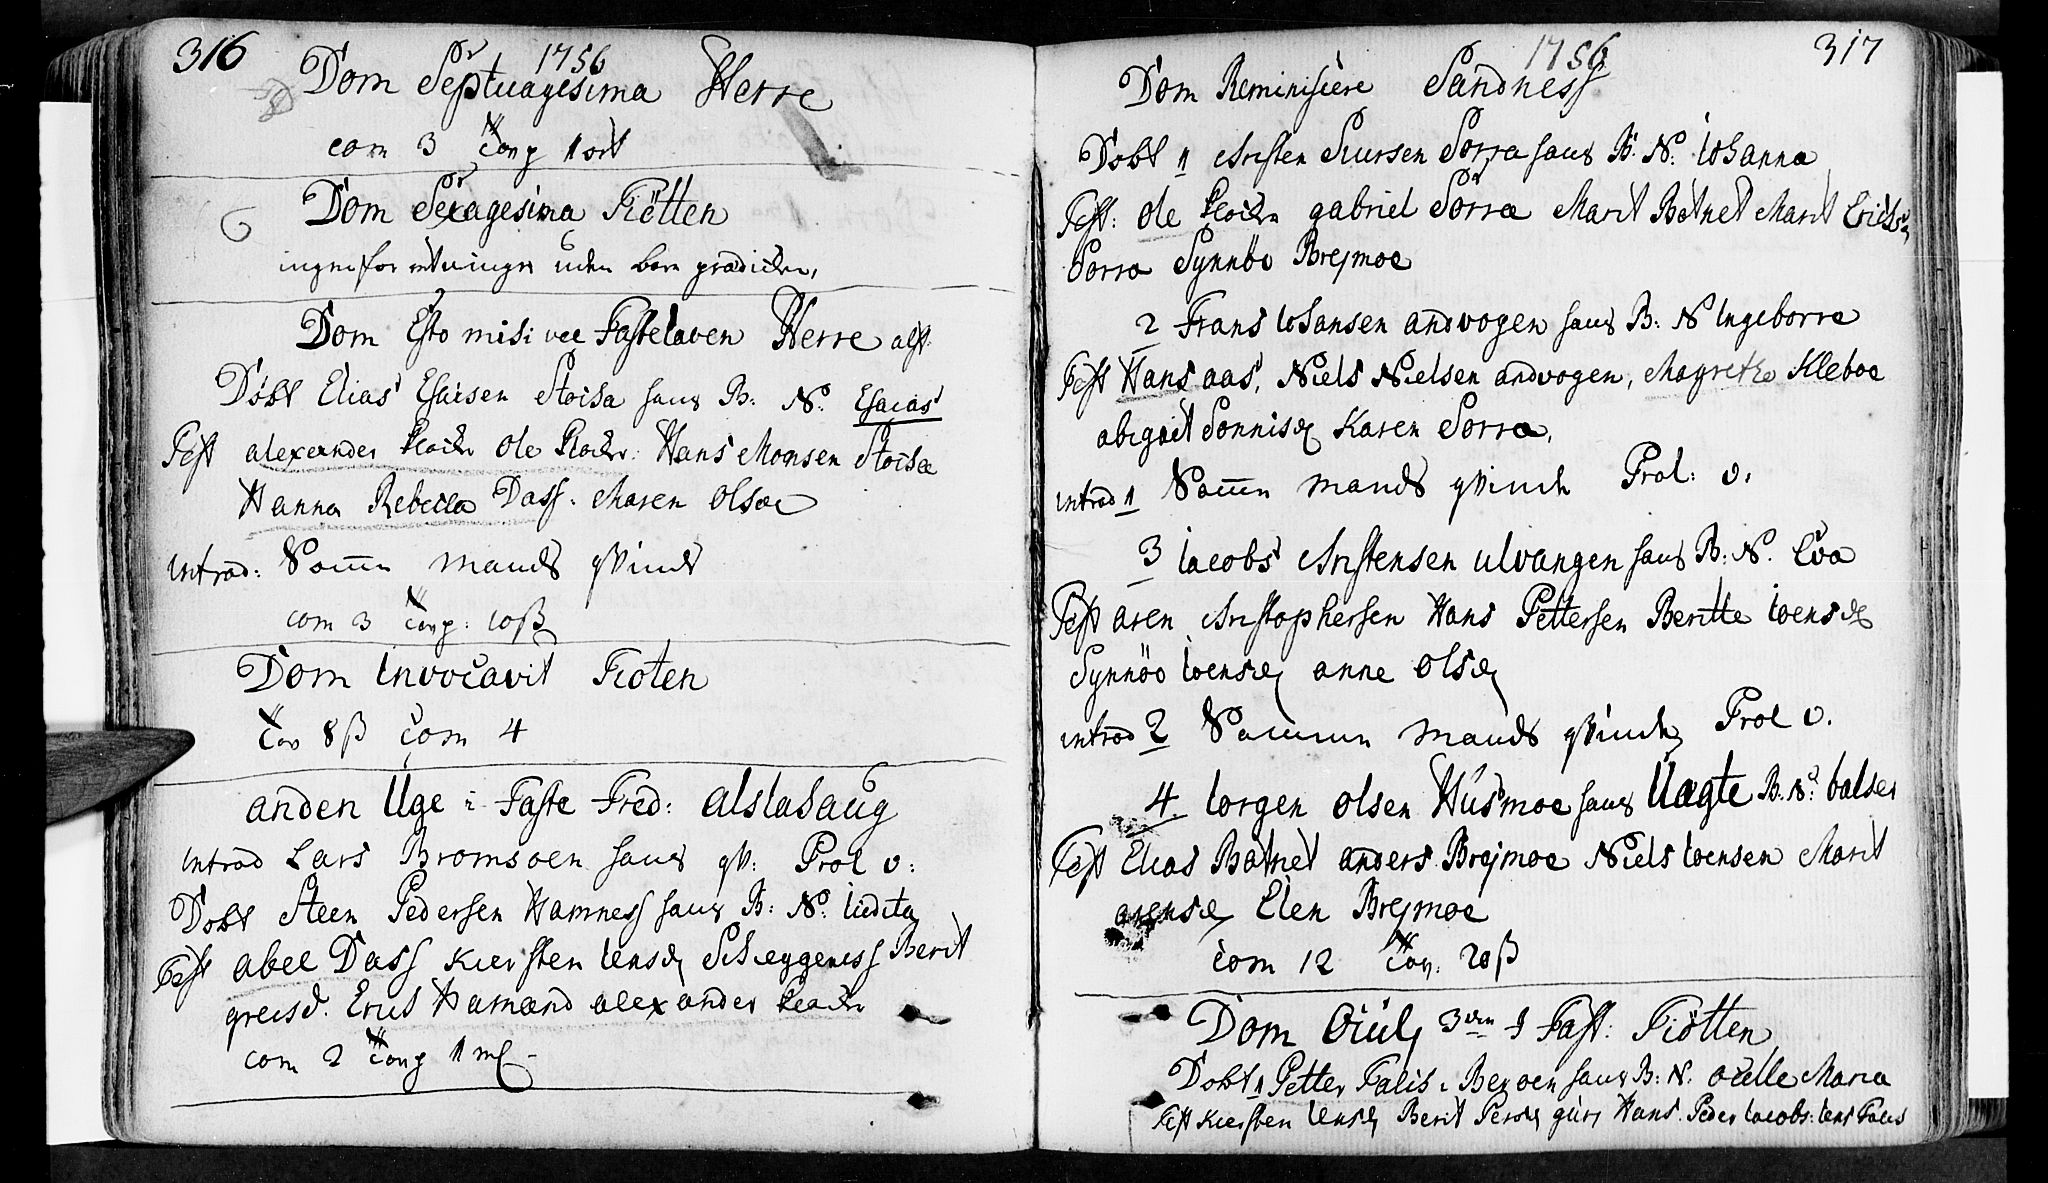 316
1756
Dom Septuagesima Herre
com 3 Conp 1 ort
Dom Sexagesima Tiötten
ingen forretninger uden bare prædicken,
Dom Esto mihi vel Fastelaven Herre
Döbt Elias Esaisen Stoisa hans B: N: Esaias
Test alexander Ole Hans Monsen Stoisæ
Hanna Rebecca Dass. Maren Olsdr
introd: Samme mands qvinde
com 3 Conp: 10 ß
Dom Invocavit Tioten
Con 8 ß Com 4
anden Uge i Faste Præd: alstahaug
introd Lars Bromsoen hans qv: Prol v:
Dobt Steen Pedersen Hamness hans B: N: Iidita
Test abel Dass Kiersten Iensd Berit
greisd. Erich Hamand alexander
com 2 Conp 1 mf
1756
317
Dom Reminiscere Sandness
Dobt 1 Christen Siursen Sorra hans B: N: Iohanna
Test: Ole gabriel Sörra Marit Botnet Marit Erichsd
Sorra Synnöv Brejmoe
2 Frans Iohansen andvogen hans B: N Ingeborre
Test Hans aas, Niels Nielsen andvogen, Magrethe Kleboe
abigael Sonnisd Karen Sorra,
introd 1 Samme mands qvinde Prol: v.
3 Iacobs Christensen ulvangen hans B: N. Eva
Test aren Christophersen Hans Pettersen Beritte Iensd
Synnöv Iensd anne Olsd
introd 2 Samme mands qvinde Prol v.
4. Iorgen Olsen Húsmoe hans Uægte B: N: balser
Test Elias Botnet anders Brejmoe Niels Iensen Marit
arensd Elen Brejmoe
Com 12 Con: 20 ß
Dom Oculi 3den I Fast: Tiötten
Dobt 1 Petter Falis i Beroen hans B: N: Maria
Test Kiersten Iensd Berit Persd guri Hans. Peder Iacobs: Iens Falis